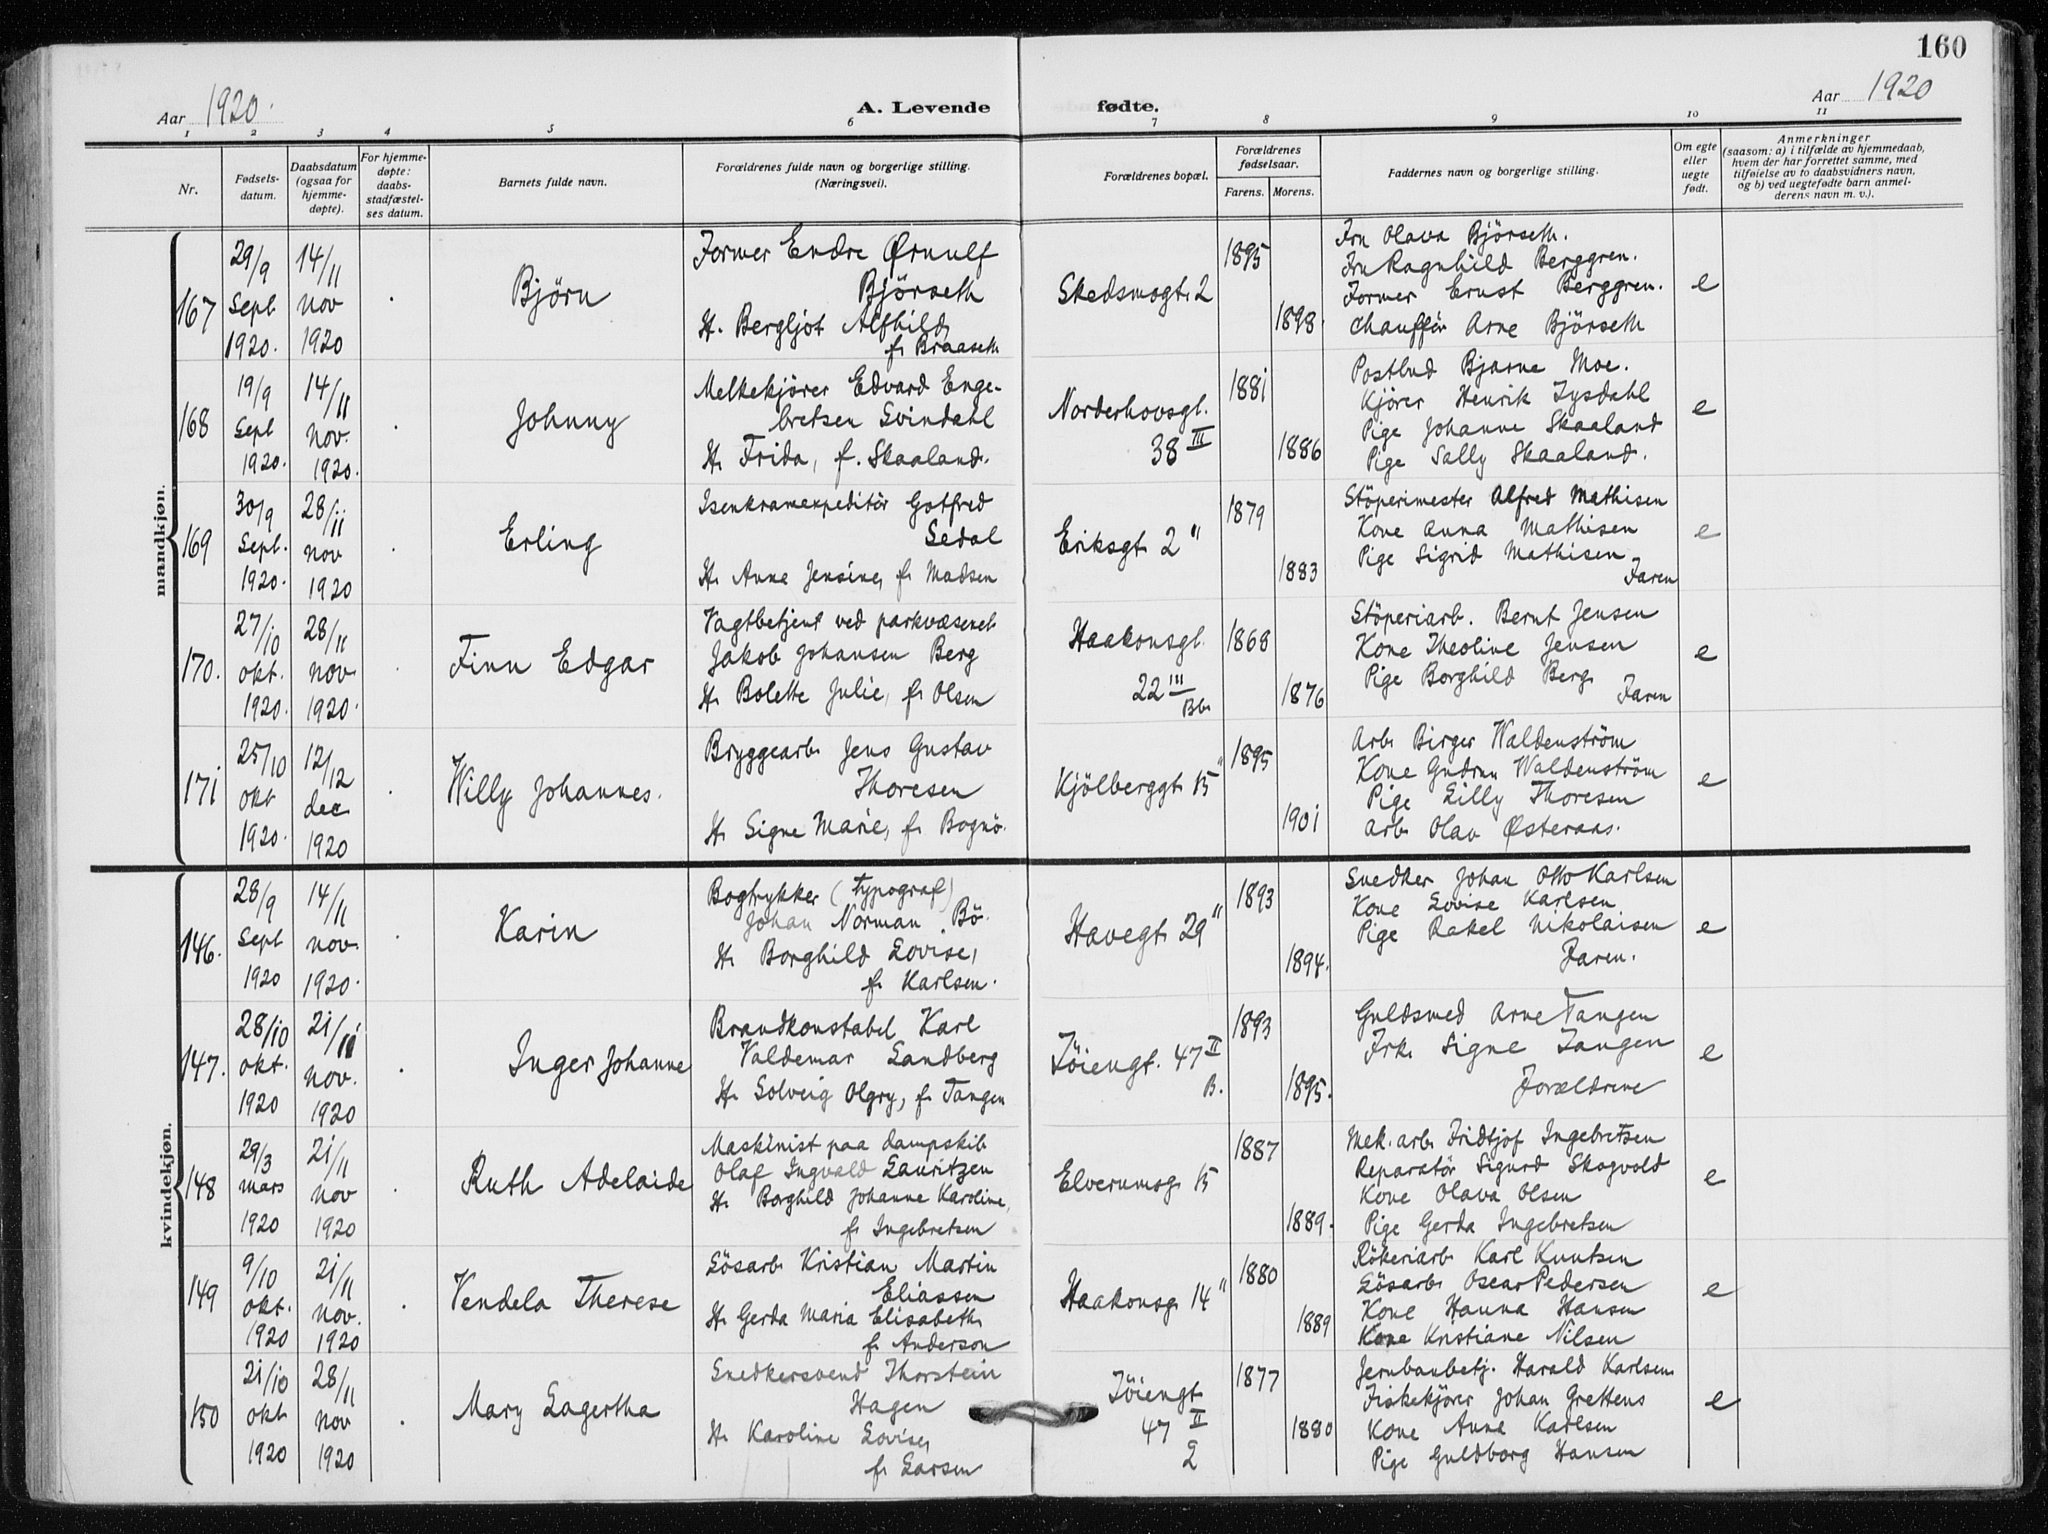 160
Aar 1920. A. Levende fødte. Aar 1920
1 2 3 4 5 6 7 8 9 10 11
Nr.
Fødsels-
datum.
Daabsdatum
(ogsaa for
hjemme-
døpte).
For hjemme-
døpte:
daabs-
stadfæstel-
ses datum.
Barnets fulde navn.
Forældrenes fulde navn og borgerlige stilling.
(Næringsvei).
Forældrenes bopæl.
Forældrenes
fødselsaar.
Farens. Morens.
Faddernes navn og borgerlige stilling.
Om egte
eller
uegte
født.
Anmerkninger
(saasom: a) i tilfælde av hjemmedaab,
hvem der har forrettet samme, med
tilføielse av to daabsvidners navn,
og b) ved uegtefødte barn anmel-
derens navn m. v.).
mandkjøn.
167
29/9
Sept
1920.
14/11
nov
1920
Björn
Former Endre Ørnulf
Björseth
H. Bergljot Alfhild,
f. Braaseth
Skedsmogt. 2
1895
1898.
Fru Olava Björseth.
Fru Ragnhild Berggren.
Former Ernst Berggren.
Chauffør Arne Björseth
e
168
19/9
Sept
1920.
14/11
nov.
1920.
Johnny
Melkekjörer Edvard Enge-
bretsen Svindahl
H. Frida, f. Skaaland.
Norderhovsgt.
38 III
1881
1886
Postbud Bjarne Moe.
Kjörer Henrik Tysdahl
Pige Johanne Skaaland
Pige Sally Skaaland.
e
169
30/9
Sept.
1920.
28/11
nov
1920
Erling
Isenkramexpeditör Gotfred
Sedal
H. Anna Jensine, f. Madsen
Eriksgt. 2 II
1879
1883
Stöperimester Alfred Mathisen
Kone Anna Mathisen
Pige Sigrid Mathisen
Faren
e
170.
27/10
okt.
1920.
28/11
nov
1920.
Finn Edgar
Vagtbetjent ved parkvæsenet
Jakob Johansen Berg
H. Bolette Julie, f. Olsen
Haakonsgt.
22 III
Bb.
1868
1876
Stöperiarb. Bernt Jensen
Kone Theoline Jensen
Pige Borghild Berg
Faren
e
171
25/10
okt
1920.
12/12
dec
1920
Willy Johannes.
Bryggearb. Jens Gustav
Thoresen
H. Signe Marie, f. Bognö.
Kjölberggt. 15 II
1895
1901
Arb. Birger Waldenström
Kone Gudrun Waldenström
Pige Lilly Thoresen
Arb. Olav Østeraas.
e
kvindekjøn.
146.
28/9
Sept
1920
14/11
nov.
1920.
Karin
Bogtrykker (Typograf)
Johan Norman Bö.
H. Borghild Lovise,
f. Karlsen.
Havegt. 29 II
1893
1894.
Snedker Johan Otto Karlsen
Kone Lovise Karlsen
Pige Rakel Nikolaisen
Faren.
e
147.
28/10
okt.
1920
21/11
nov.
1920
Inger Johanne
Brandkonstabel Karl
Valdemar Sandberg
H. Solveig Olgry, f. Tangen
Töiengt. 47 II
B.
1893
1895.
Guldsmed Arne Tangen
Frk. Signe Tangen
Forældrene
e
148
29/3
mars
1920
21/11
nov
1920
Ruth Adelaide
Maskinist paa dampskib
Olaf Ingvald Lauritzen
H. Borghild Johanne Karoline,
f. Ingebretsen
Elverumsg. 15
1887
1889.
Mek. arb. Fridtjof Ingebretsen
Reparatör Sigurd Skogvold
Kone Olava Olsen
Pige Gerda Ingebretsen
e
149
9/10
okt.
1920
21/11
nov.
1920
Vendela Therese
Lösarb. Kristian Martin
Eliassen
H. Gerda Maria Elisabeth,
f. Anderson
Haakonsg. 14 II
1880
1889
Rökeriarb. Karl Knutsen
Lösarb. Oscar Pedersen
Kone Hanna Hansen
Kone Kristiane Nilsen
e
150
21/10
okt
1920
28/11
nov
1920
Mary Lagertha
Snedkersvend Thorstein
Hagen
H. Karoline Lovise,
f. Larsen
Töiengt
47 II
2
1877
1880
Jernbanbetj. Harald Karlsen
Fiskekjörer Johan Grettens
Kone Anna Karlsen
Pige Guldborg Hansen
e